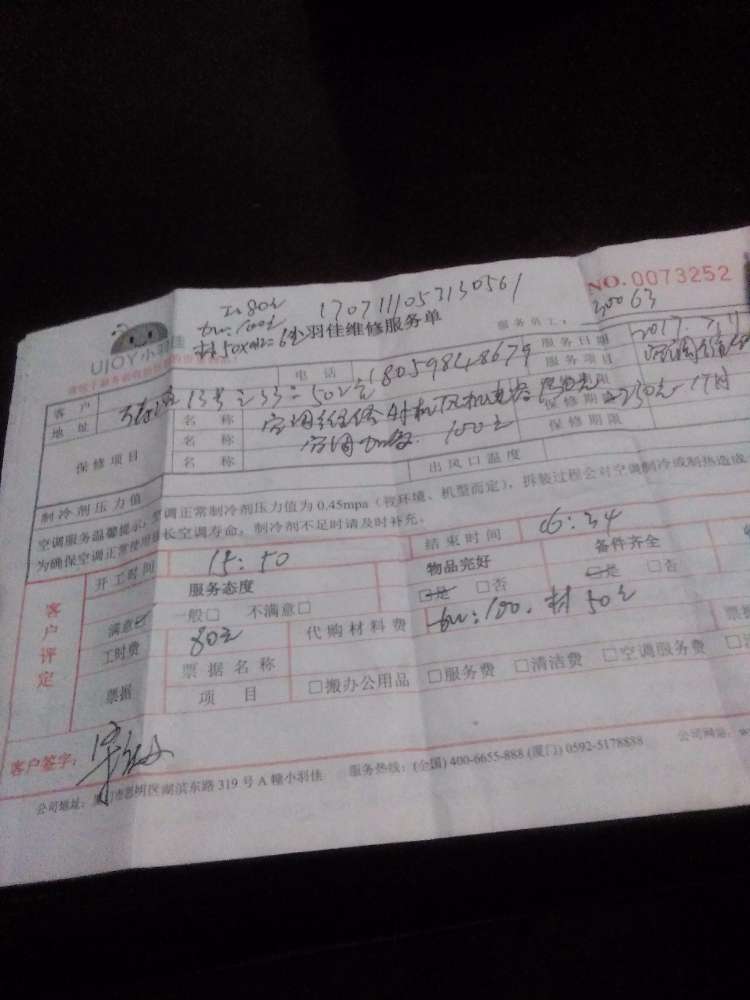 工:80元
1707111053130561
NO.0073252
加:100元
材50X
UJOY小羽佳
小羽佳维修服务单
服务员工:
30063
客户
电话
18059848679
服务日期
2017.7.11
地址
13号之33-502室
服务项目
保修项目
名称
保修期限
名称
空调加氨 100元
保修期限
名称
出风口温度
制冷剂压力值
空调服务温馨提示:空调正常制冷剂压力值为0.45mpa(按环境、机型而定),拆装过程会对空调制冷或制热造成
为确保空调正常使用延长空调寿命,制冷剂不足时请及时补充。
客户评定
开工时间
15:50
结束时间
16:34
服务态度
物品完好
备件齐全
满意
一般
不满意
是
否
是
否
工时费
80元
代购材料费
加:100,材50元
票据
票据名称
项目
搬办公用品
服务费
清洁费
空调服务费
客户签字:
公司地址:厦门市思明区湖滨东路319号A幢小羽佳
服务热线:(全国)400-6655-888(厦门)0592-5178888
公司网站:w